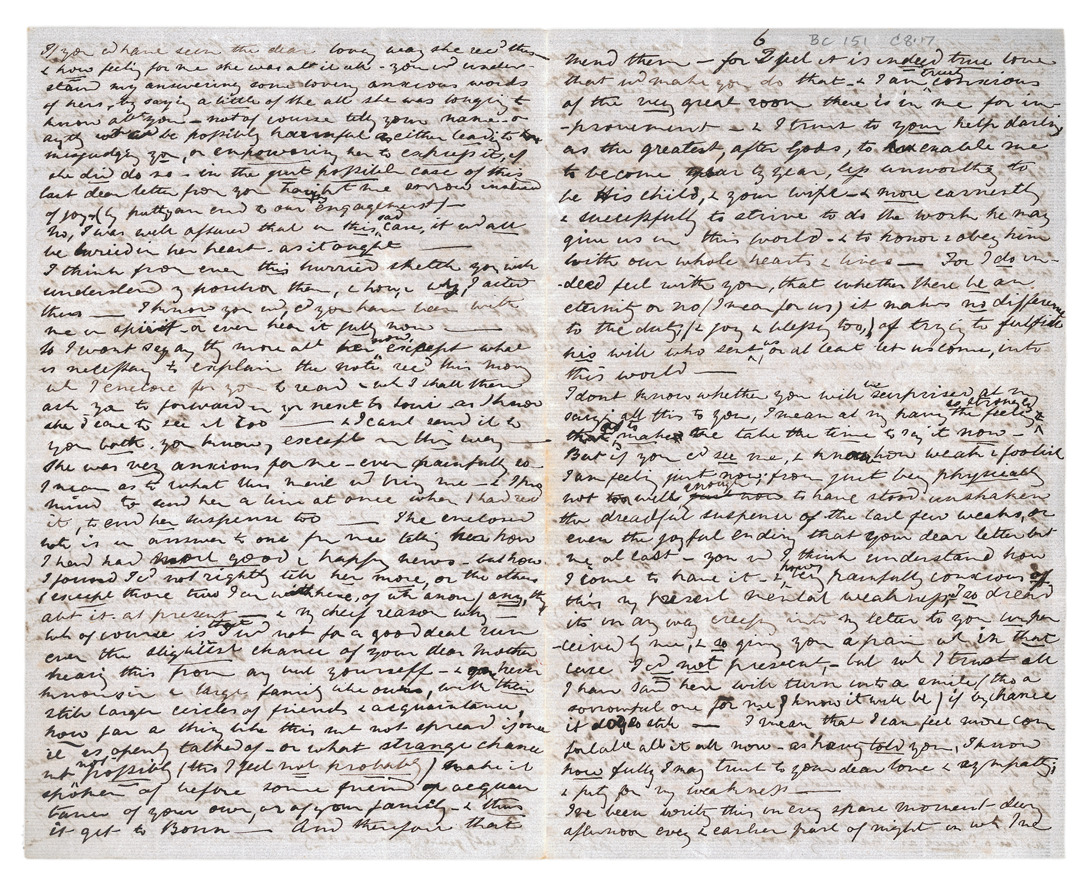 If you cd have seen the dear loving way she recd this
& how feeling for me she was abt it all - you wd under-
stand my answering some loving anxious words
of hers, by saying a little of the all she was longing to
know abt you - not of course tell your name - or
be possibly harmful as either leading to
misjudging you, or empowering her to express it, if
she did do so - in the just possible case of this
last dear letter from you bringing me sorrow instead
of joy (by putting an end to our engagement) -
No, I was well assured that in this sad case, it wd all
be buried in her heart - as it ought ——
I think from even this hurried sketch you will
understand my position then, & how, & why, I acted
thus — I know you wd, if you have been with
me in spirit - or ever hear it fully now ——
So I want say any th more abt her now, except what
is necessary to explain the note recd this morng
wh I enclose for you to read - wh I shall then
ask you to forward in yr next to Loui - as I know
she'd care to see it too —— & I can't send it to
you both, you know, except in this way ——
She was very anxious for me - even painfully so
I mean as to what this mail wd bring me - & I
mind to send her a line at once when I had recd
it, to end her suspense too —— The enclosed
note is in answer to one fr me telling her how
I had had most good & happy news - but how
I found I cd not rightly tell her more, or the others
(except those two I am with here, of wh anon) any th
abt it at present —— & my chief reason why
wh of course is that I wd not for a good deal run
even the slightest chance of your dear Mother
hearing this from any but yourself - & here
knowing in a large family like ours, with their
still larger circles of friends & acquaintance,
how far a thing like this mt not spread if once
it is openly talked of - or what strange chance
mt not possibly (tho' I feel not probably) make it
spoken of before some friend or acquain
tance of your own, or of your family - & thus
it get to Bonn —— And therefore that
6 BC 151 C817
mend them - for I feel it is indeed true love
that wd make you do that - & I am truly conscious
of the very great room there is in me for im-
-provement - & I trust to your help darling
as the greatest, after Gods, to enable me
to become year by year, less unworthy to
be His child, & your wife - & more earnestly
& successfully to strive to do the work he may
give us in this world - & to honor & obey him
with our whole hearts & lives — For I do in-
-deed feel with you, that whether there be an
eternity or no (I mean for us) it makes no difference
to the duty (& joy & blessg too,) of trying to fulfill
his will who sent us, or at least let us come, into
this world ——
I dont know whether you will be surprised at my
saying all this to you, I mean at my having the feeling so strongly
as to make me take the time to say it now -
But if you cd see me, & know how weak & foolish
I am feeling just now, from just being physically
not well enough to have stood unshaken
the dreadful suspense of the last few weeks, or
even the joyful ending that your dear letter but
me at last - you wd I think understand how
I come to have it - & how very painfully conscious of
this my present mental weakness, I so dread
its in any way creeping into my letter to you unper
-ceived by me, & so giving you a pain wh in that
case I cd not prevent - but wh I trust all
I have said here will turn into a smile (tho a
sorrowful one for me I know it will be) if by chance
it does still —— I mean that I can feel more com
fortable abt it all now - as having told you, I know
how fully I may trust to your dear love & sympathy
& pity for my weakness ——
I've been writing this in evy spare moment during
afternoon eveng & earlier part of night in wh I've